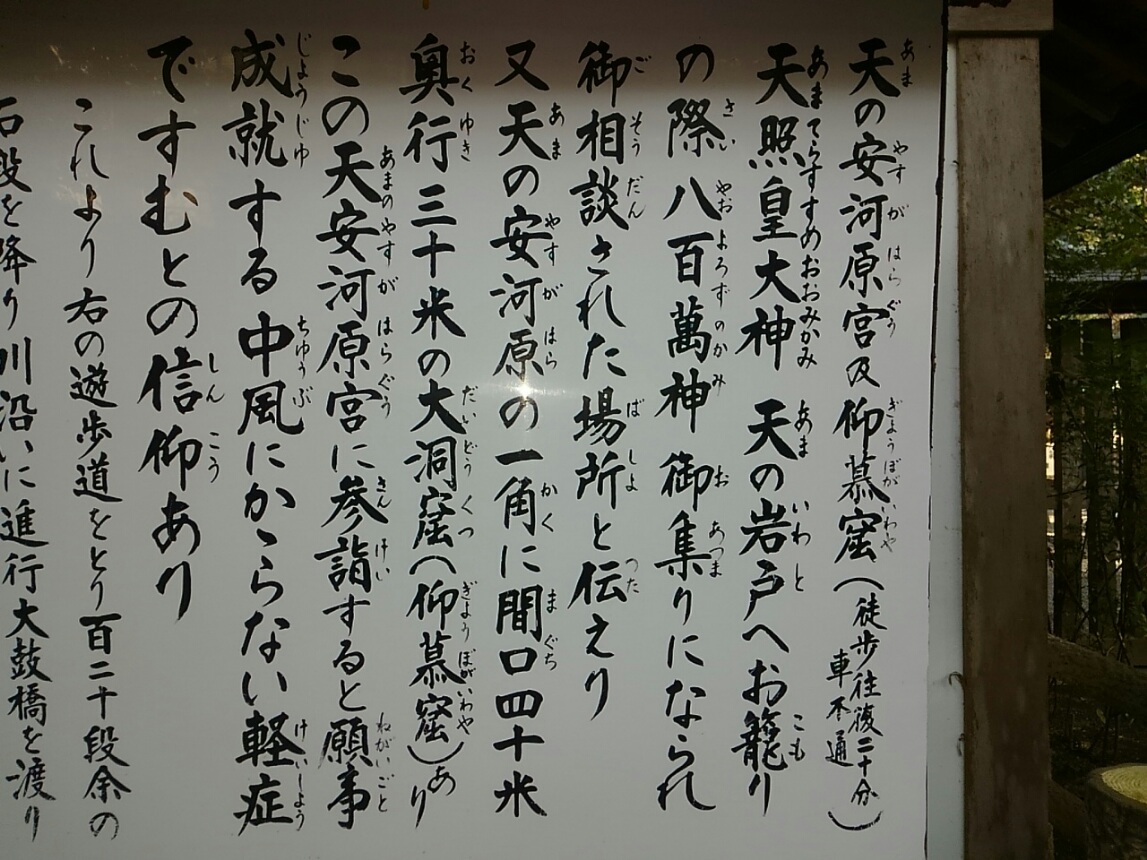 天の安河原宮及仰慕窟(徒歩往復二十分 車不通)
天照皇大神 天の岩戸へお籠り
の際八百萬神御集りになられ
御相談された場所と伝えり
又天の安河原の一角に間口四十米
奥行三十米の大洞窟(仰慕窟)あり
この天安河原宮に参詣すると願事
成就する中風にかからない軽症
ですむとの信仰あり
これより右の遊歩道をとり百二十段余の
石段を降り川沿いに進行大鼓橋を渡り